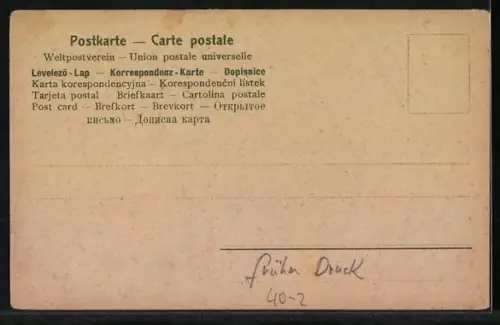 Postkarte — Carte postale
Weltpostverein — Union postale universelle
Levelező-Lap — Korrespondenz-Karte — Dopisnice
Karta korespondencyjna — Korespondenční lístek
Tarjeta postal — Briefkaart — Cartolina postale
Post card — Brefkort — Brevkort — Открытое
письмо — Дописна карта
früher Druck
40-2